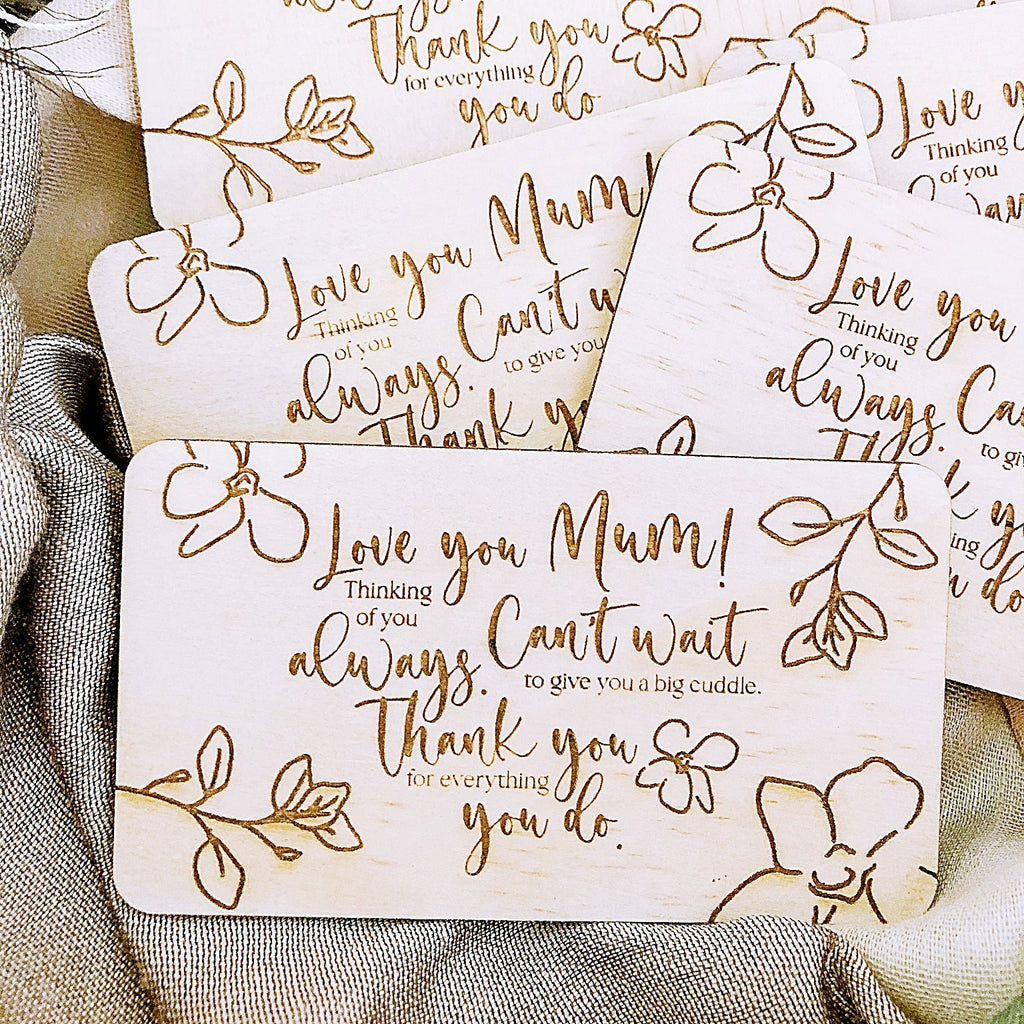 Thank you
for everything
you do
Love
Thinking
of you
Love you Mum!
Thinking
of you
always. Can't
to give you
Thank
Love you
Thinking
of you
always.
to
Love you Mum!
Thinking
of you
always. Can't wait
to give you a big cuddle.
Thank you
for everything
you do.